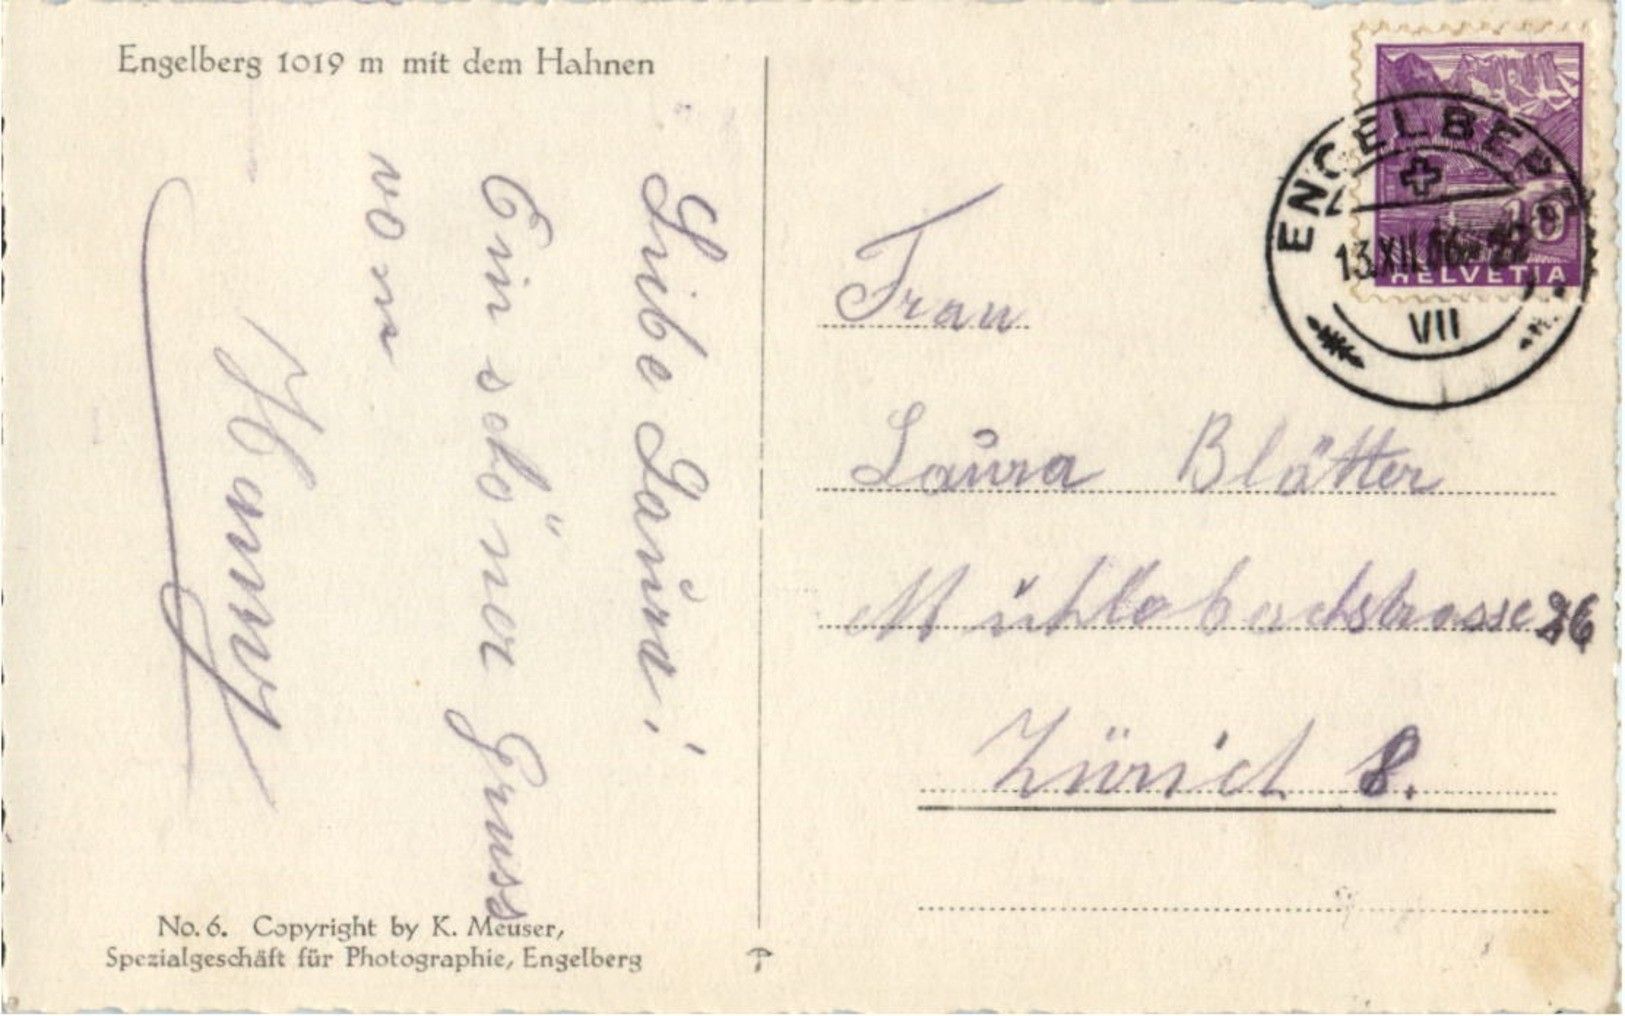 Engelberg 1019 m mit dem Hahnen
Libe Laura!
Ein schöner Gruss
von
Hanny
No. 6. Copyright by K. Meuser,
Spezialgeschäft für Photographie, Engelberg
ENGELBERG
13.XII.36
VII
10
HELVETIA
Frau
Laura Blätter
Mühlebachstrasse 26
Zürich 8.